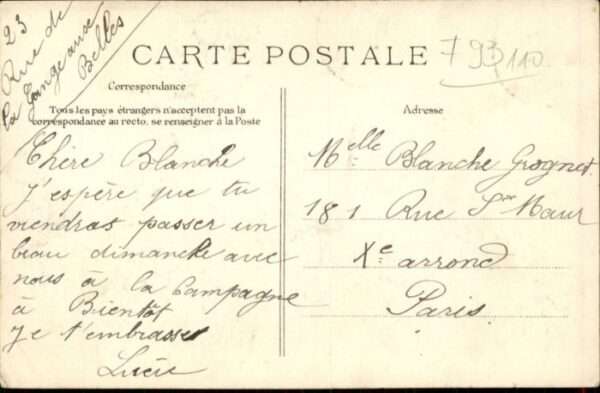 23
Rue de
la Grange aux
Belles
CARTE POSTALE
793110
Correspondance
Tous les pays étrangers n'acceptent pas la
correspondance au recto, se renseigner à la Poste
Chère Blanche
J'espère que tu
viendras passer un
beau dimanche avec
nous à la Campagne
à Bientôt
Je t'embrasse
Lucie
Adresse
Melle Blanche Grognet
181 Rue St Maur
Xe arrond
Paris